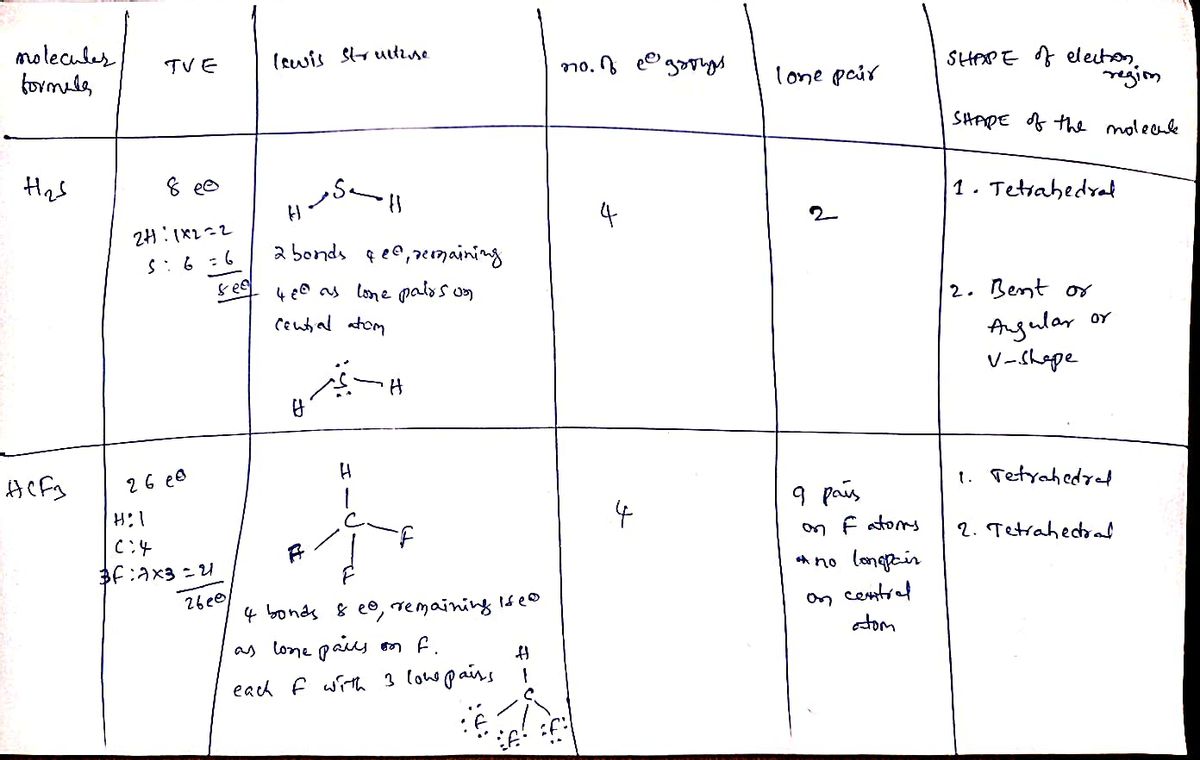 molecules formula
TVE
lewis structure
no. of e⊖ groups
lone pair
SHAPE of electron region
SHAPE of the molecule
H2S
8 e⊖
2H : 1x2 = 2
S : 6 = 6
8 e⊖
S
H H
2 bonds 4 e⊖, remaining
4 e⊖ as lone pairs on
central atom
S
H H
4
2
1. Tetrahedral
2. Bent or
Angular or
V-shape
HCF3
26 e⊖
H : 1
C : 4
3F : 7x3 = 21
26 e⊖
H
C
F F
F
4 bonds 8 e⊖, remaining 18 e⊖
as lone pairs on F.
each F with 3 lone pairs
H
C
F F F
4
9 pairs
on F atoms
no lonepair
on central
atom
1. Tetrahedral
2. Tetrahedral